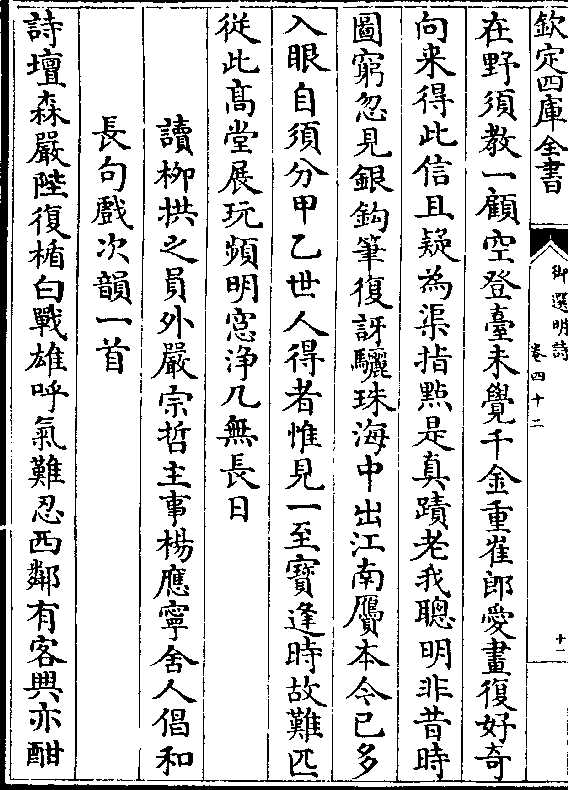 欽定四庫全書
御選明詩
卷四十二
十一
在野須教一顧空登臺未覺千金重崔郎愛畫復好奇
向来得此信且疑為渠指㸃是真蹟老我聰明非昔時
圖窮忽見銀鈎筆復訝驪珠海中出江南贗本今已多
入眼自須分甲乙世人得者惟見一至寶逢時故難匹
從此髙堂展玩頻明窓浄几無長日
讀栁拱之員外嚴宗哲主事楊應寧舍人倡和
長句戲次韻一首
詩壇森嚴陛復楯白戰雄呼氣難忍西鄰有客興亦酣